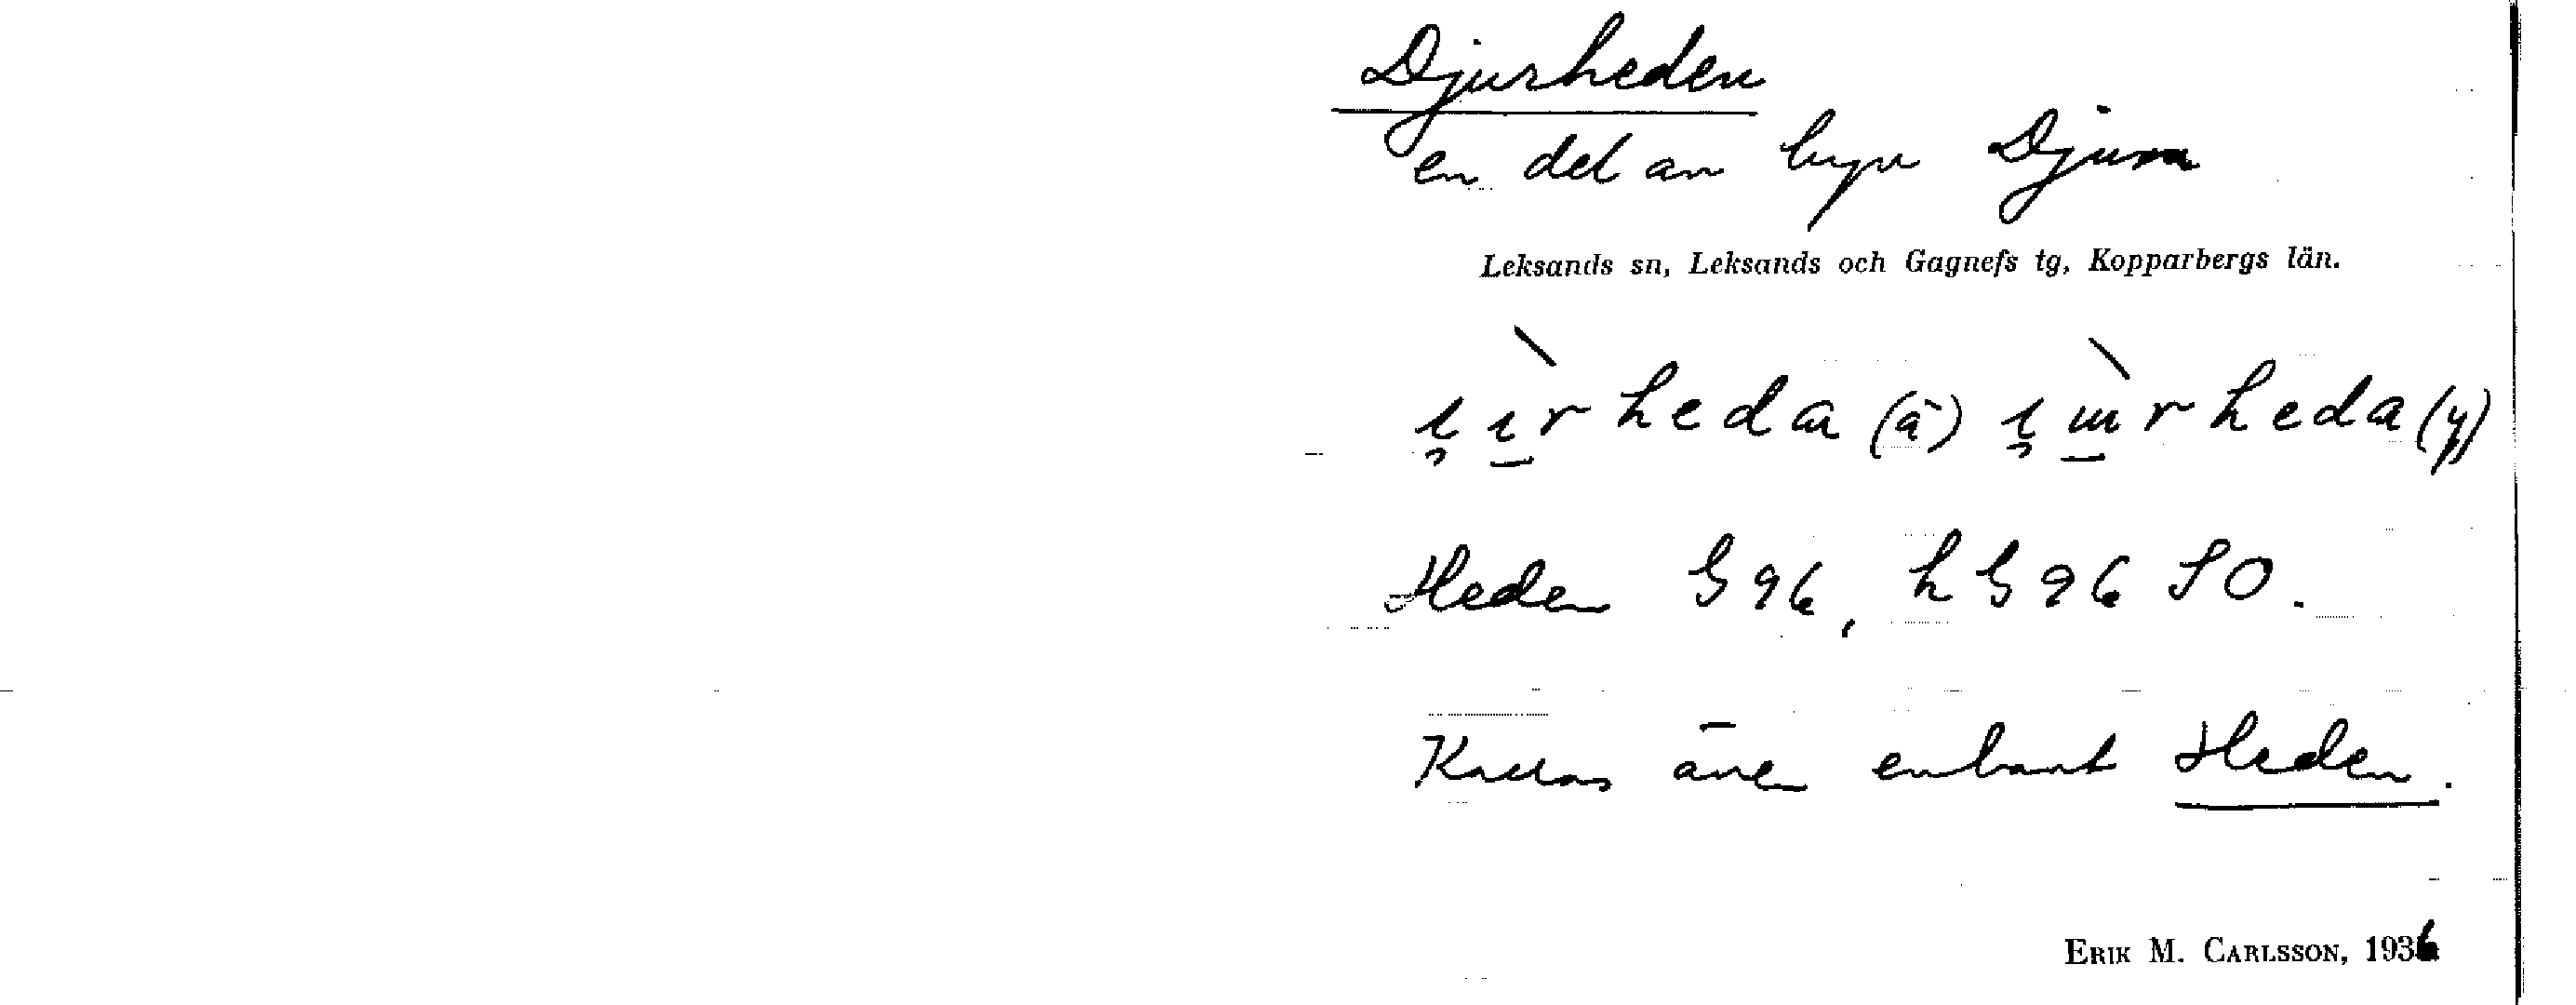 Djurheden
en del av byn Djura
Leksands sn, Leksands och Gagnefs tg, Kopparbergs län.
heda (ä) heda (y)
Heden G 96, h G 96 SO.
Kallas även enbart Heden.
ERIK M. CARLSSON, 1936